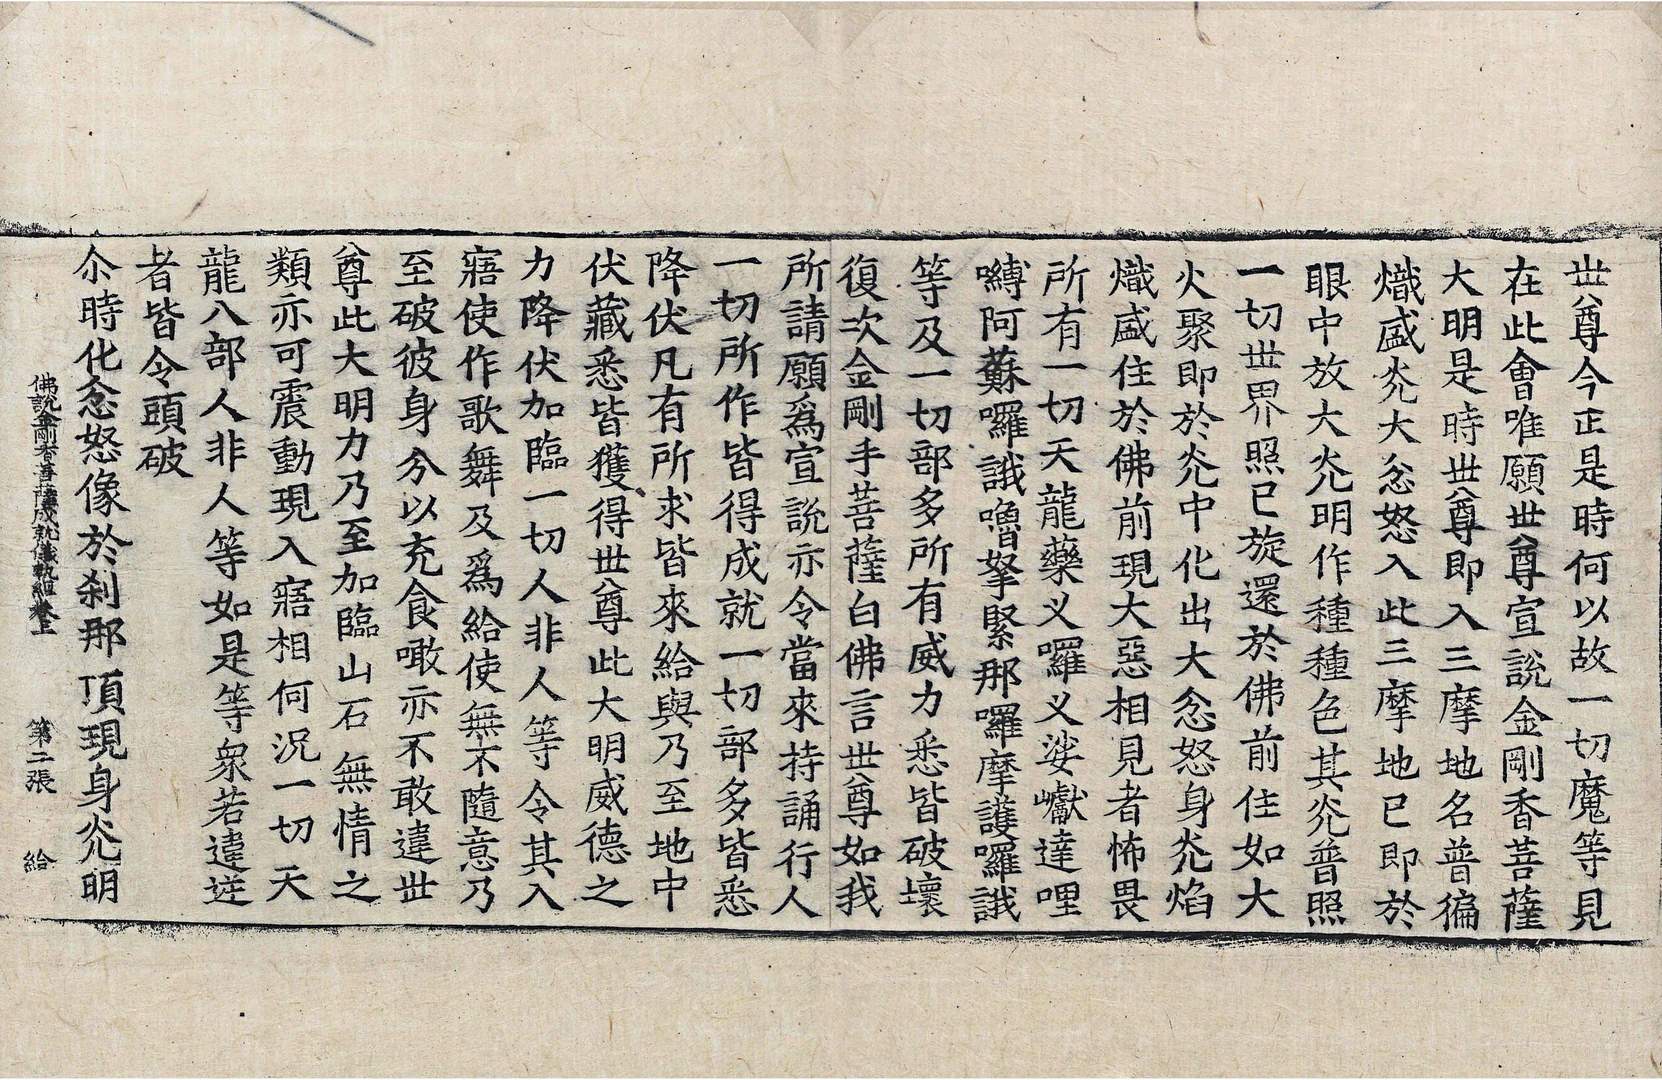 世尊今正是時何以故一切魔等見
在此會唯願世尊宣說金剛香菩薩
大明是時世尊即入三摩地名普徧
熾盛光大忿怒入此三摩地已即於
眼中放大光明作種種色其光普照
一切世界照已旋還於佛前住如大
火聚即於光中化出大忿怒身光焰
熾盛住於佛前現大惡相見者怖畏
所有一切天龍藥叉囉叉娑巘達哩
嚩阿蘇囉誐嚕拏緊那囉摩護囉誐
等及一切部多所有威力悉皆破壞
復次金剛手菩薩白佛言世尊如我
所請願爲宣說亦令當來持誦行人
一切所作皆得成就一切部多皆悉
降伏凡有所求皆來給與乃至地中
伏藏悉皆獲得世尊此大明威德之
力降伏加臨一切人非人等令其入
寤使作歌舞及爲給使無不隨意乃
至破彼身分以充食噉亦不敢違世
尊此大明力乃至加臨山石無情之
類亦可震動現入寤相何況一切天
龍八部人非人等如是等衆若違逆
者皆令頭破
尒時化忿怒像於刹那頂現身光明
佛說金剛香菩薩成就儀軌經卷上 第二張 給